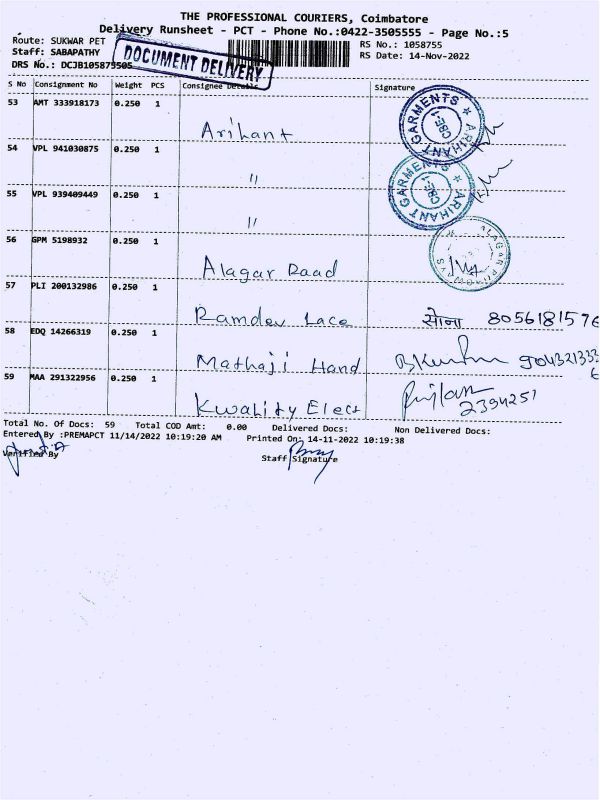 THE PROFESSIONAL COURIERS, Coimbatore
Delivery Runsheet - PCT - Phone No.:0422-3505555 - Page No.:5
Route: SUKWAR PET RS No.: 1058755
Staff: SABAPATHY RS Date: 14-Nov-2022
DRS No.: DCJB105875505
DOCUMENT DELIVERY
S No Consignment No Weight PCS Consignee Details Signature
53 AMT 333918173 0.250 1 Arihant
ARIHANT GARMENTS CBE-1
54 VPL 941030875 0.250 1 "
ARIHANT GARMENTS CBE-1
55 VPL 939409449 0.250 1 "
56 GPM 5198932 0.250 1 Alagar Raad
ALAGAR
57 PLI 200132986 0.250 1 Ramdev Lace सोना 8056181576
58 EDQ 14266319 0.250 1 Mathaji Hand
59 MAA 291322956 0.250 1 Kwality Elect 2394251
Total No. Of Docs: 59 Total COD Amt: 0.00 Delivered Docs: Non Delivered Docs:
Entered By :PREMAPCT 11/14/2022 10:19:20 AM Printed On: 14-11-2022 10:19:38
Verified By Staff Signature